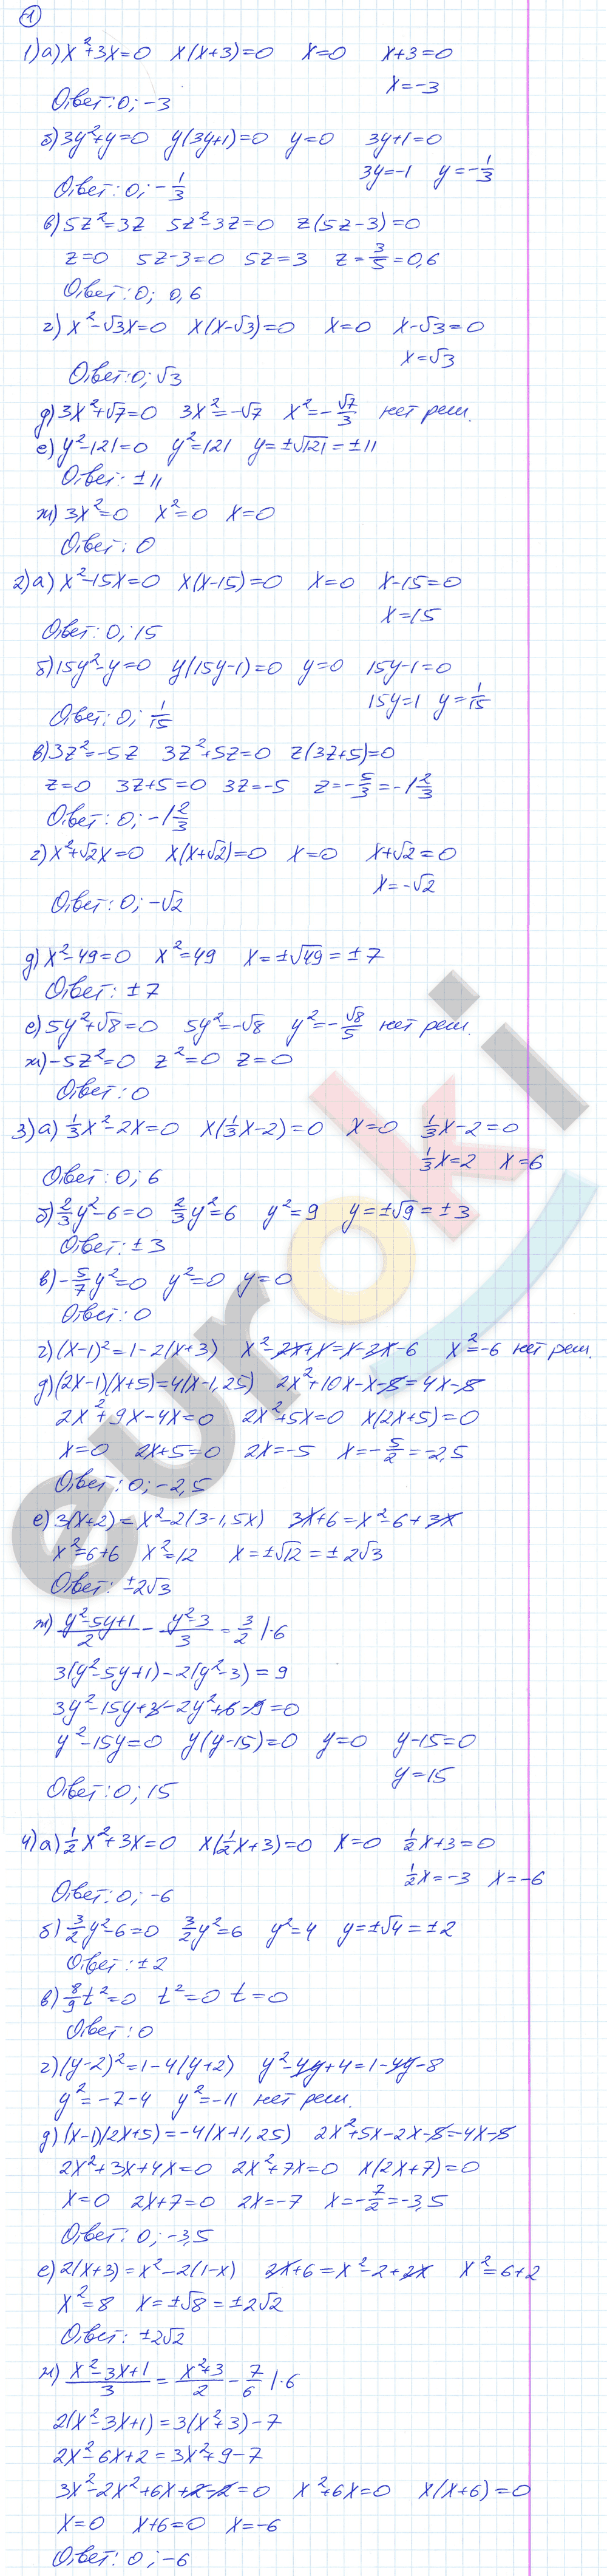 1
1) а) x²+3x=0 x(x+3)=0 x=0 x+3=0
x=-3
Ответ: 0; -3
б) 3y²+y=0 y(3y+1)=0 y=0 3y+1=0
3y=-1 y=-1/3
Ответ: 0; -1/3
в) 5z²=3z 5z²-3z=0 z(5z-3)=0
z=0 5z-3=0 5z=3 z=3/5=0,6
Ответ: 0; 0,6
г) x²-√3x=0 x(x-√3)=0 x=0 x-√3=0
x=√3
Ответ: 0; √3
д) 3x²+√7=0 3x²=-√7 x²=-√7/3 нет реш.
е) y²-121=0 y²=121 y=±√121=±11
Ответ: ±11
ж) 3x²=0 x²=0 x=0
Ответ: 0
2) а) x²-15x=0 x(x-15)=0 x=0 x-15=0
x=15
Ответ: 0; 15
б) 15y²-y=0 y(15y-1)=0 y=0 15y-1=0
15y=1 y=1/15
Ответ: 0; 1/15
в) 3z²=-5z 3z²+5z=0 z(3z+5)=0
z=0 3z+5=0 3z=-5 z=-5/3=-1 2/3
Ответ: 0; -1 2/3
г) x²+√2x=0 x(x+√2)=0 x=0 x+√2=0
x=-√2
Ответ: 0; -√2
д) x²-49=0 x²=49 x=±√49=±7
Ответ: ±7
е) 5y²+√8=0 5y²=-√8 y²=-√8/5 нет реш.
ж) -5z²=0 z²=0 z=0
Ответ: 0
3) а) 1/3x²-2x=0 x(1/3x-2)=0 x=0 1/3x-2=0
1/3x=2 x=6
Ответ: 0; 6
б) 2/3y²-6=0 2/3y²=6 y²=9 y=±√9=±3
Ответ: ±3
в) -5/7y²=0 y²=0 y=0
Ответ: 0
г) (x-1)²=1-2(x+3) x²-2x+1=1-2x-6 x²=-6 нет реш.
д) (2x-1)(x+5)=4(x-1,25) 2x²+10x-x-5=4x-5
2x²+9x-4x=0 2x²+5x=0 x(2x+5)=0
x=0 2x+5=0 2x=-5 x=-5/2=-2,5
Ответ: 0; -2,5
е) 3(x+2)=x²-2(3-1,5x) 3x+6=x²-6+3x
x²=6+6 x²=12 x=±√12=±2√3
Ответ: ±2√3
ж) (y²-5y+1)/2 - (y²-3)/3 = 3/2 |·6
3(y²-5y+1)-2(y²-3)=9
3y²-15y+3-2y²+6-9=0
y²-15y=0 y(y-15)=0 y=0 y-15=0
y=15
Ответ: 0; 15
4) а) 1/2x²+3x=0 x(1/2x+3)=0 x=0 1/2x+3=0
1/2x=-3 x=-6
Ответ: 0; -6
б) 3/2y²-6=0 3/2y²=6 y²=4 y=±√4=±2
Ответ: ±2
в) 8/9t²=0 t²=0 t=0
Ответ: 0
г) (y-2)²=1-4(y+2) y²-4y+4=1-4y-8
y²=-7-4 y²=-11 нет реш.
д) (x-1)(2x+5)=-4(x+1,25) 2x²+5x-2x-5=-4x-5
2x²+3x+4x=0 2x²+7x=0 x(2x+7)=0
x=0 2x+7=0 2x=-7 x=-7/2=-3,5
Ответ: 0; -3,5
е) 2(x+3)=x²-2(1-x) 2x+6=x²-2+2x x²=6+2
x²=8 x=±√8=±2√2
Ответ: ±2√2
ж) (x²-3x+1)/3 = (x²+3)/2 - 7/6 |·6
2(x²-3x+1)=3(x²+3)-7
2x²-6x+2=3x²+9-7
3x²-2x²+6x+2-2=0 x²+6x=0 x(x+6)=0
x=0 x+6=0 x=-6
Ответ: 0; -6
euroki